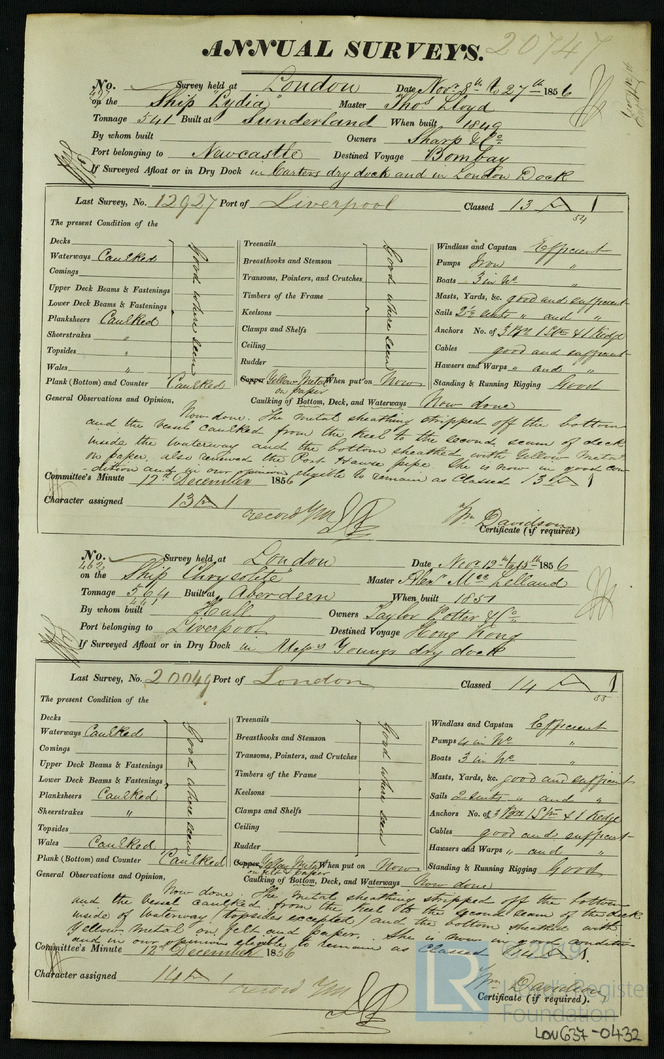 ANNUAL SURVEYS. 20747
No. Survey held at London Date Novr 8th & 27th 1856
on the Ship "Lydia" Master Thos Lloyd
Tonnage 541 Built at Sunderland When built 1849
By whom built Owners Sharp & Co.
Port belonging to Newcastle Destined Voyage Bombay
If Surveyed Afloat or in Dry Dock in Carters dry dock and in London Dock
Last Survey, No. 12927 Port of Liverpool Classed 13 A 1
54
The present Condition of the
Decks
Waterways Caulked
Comings
Upper Deck Beams & Fastenings
Lower Deck Beams & Fastenings
Planksheers Caulked
Sheerstrakes "
Topsides "
Wales "
Plank (Bottom) and Counter Caulked
Good where seen
Treenails
Breasthooks and Stemson
Transoms, Pointers, and Crutches
Timbers of the Frame
Keelsons
Clamps and Shelfs
Ceiling
Rudder
Good where seen
Copper Yellow Metal When put on Now
on paper
Caulking of Bottom, Deck, and Waterways Now done
Windlass and Capstan Efficient
Pumps Iron "
Boats 3 in No "
Masts, Yards, &c. good and sufficient
Sails 2 1/2 suits " and "
Anchors No. of 3 Br 1 Stm & 1 Kedge
Cables good and sufficient
Hawsers and Warps " and "
Standing & Running Rigging Good
General Observations and Opinion,
Now done. The metal sheathing stripped off the bottom
and the vessel caulked from the keel to the second seam of deck
inside the waterway and the bottom sheathed with Yellow Metal
on paper, also renewed the Port Hawse pipe. She is now in good con
dition and in our opinion eligible to remain as Classed 13 A 1
Committee's Minute 12th December 1856
Character assigned 13 A 1
record YM
Wm Davidson
Certificate (if required)
No. 462 Survey held at London Date Novr 12th & 15th 1856
on the Ship Chrysolite Master Alexr McLelland
Tonnage 564 Built at Aberdeen When built 1851
By whom built Hall Owners Taylor Potter & Co.
Port belonging to Liverpool Destined Voyage Hong Kong
If Surveyed Afloat or in Dry Dock in Messrs Youngs dry dock
Last Survey, No. 20049 Port of London Classed 14 A 1
55
The present Condition of the
Decks
Waterways Caulked
Comings
Upper Deck Beams & Fastenings
Lower Deck Beams & Fastenings
Planksheers Caulked
Sheerstrakes "
Topsides
Wales Caulked
Plank (Bottom) and Counter Caulked
Good where seen
Treenails
Breasthooks and Stemson
Transoms, Pointers, and Crutches
Timbers of the Frame
Keelsons
Clamps and Shelfs
Ceiling
Rudder
Good where seen
Copper Yellow Metal When put on Now
on felt & paper
Caulking of Bottom, Deck, and Waterways Now done
Windlass and Capstan Efficient
Pumps 4 in No "
Boats 3 in No "
Masts, Yards, &c. good and sufficient
Sails 2 suits " and "
Anchors No. of 3 Br 1 Stm & 1 Kedge
Cables good and sufficient
Hawsers and Warps " and "
Standing & Running Rigging Good
General Observations and Opinion,
Now done. The metal sheathing stripped off the bottom
and the vessel caulked from the keel to the second seam of the deck
inside of Waterway (topsides excepted) and the bottom sheathed with
Yellow Metal on felt and paper. She is now in good condition
and in our opinion eligible to remain as Classed 14 A 1.
Committee's Minute 12th December 1856
Character assigned 14 A 1
record YM
Wm Davidson
Certificate (if required).
LR © 2019
Lloyd's Register
Foundation
LON637-0432